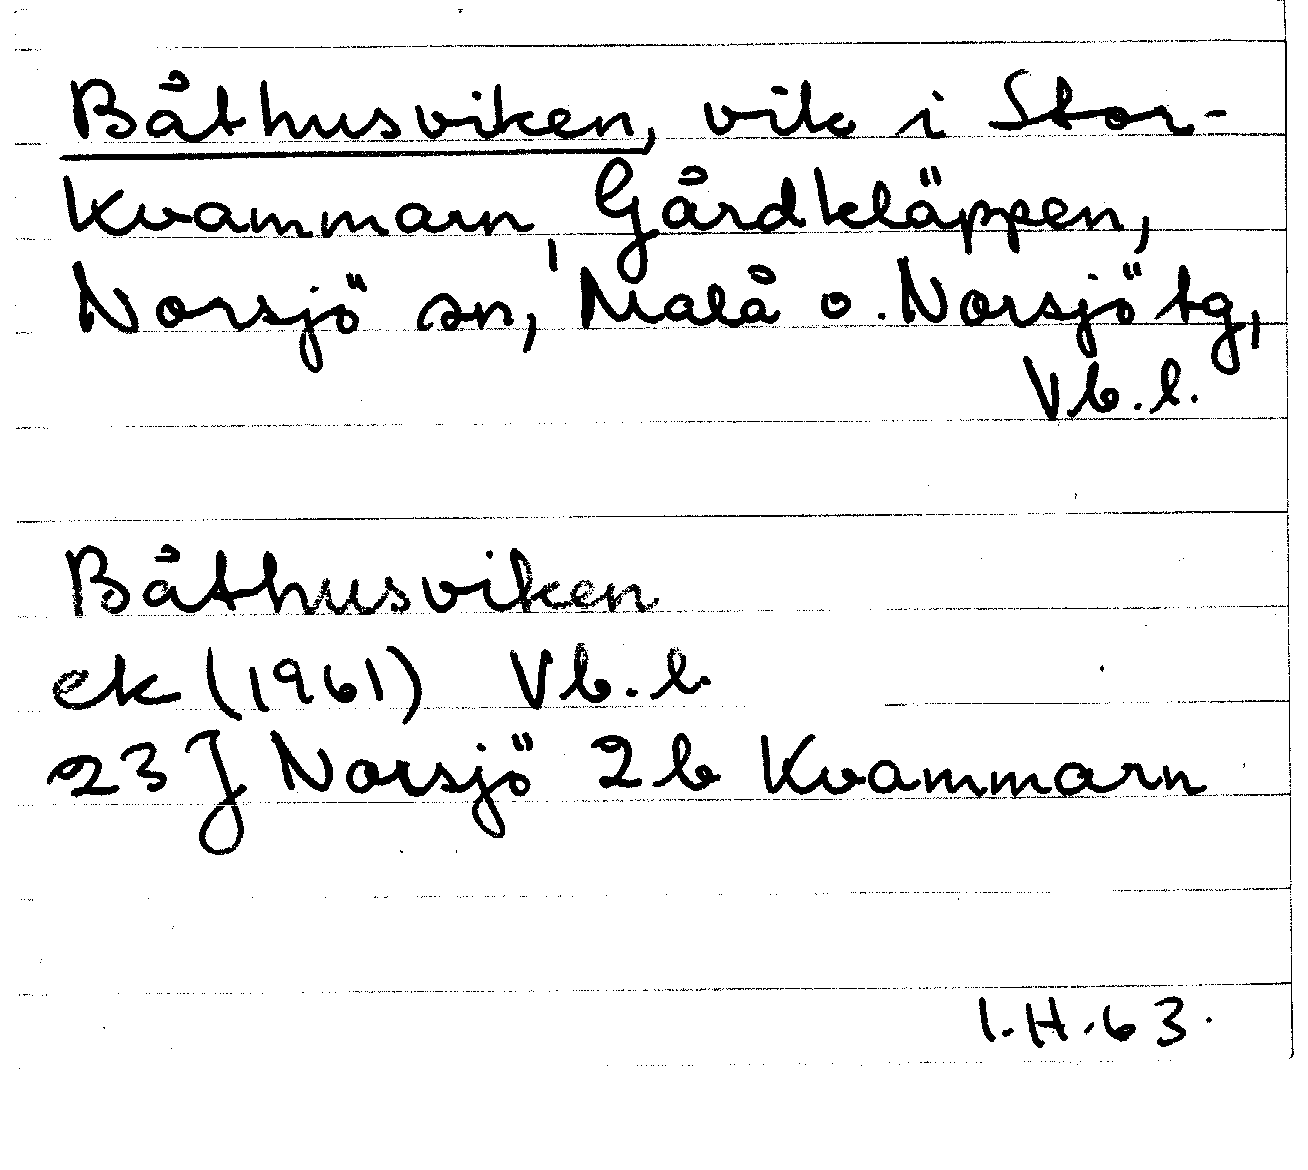 Båthusviken, vik i Stor-
Kvammarn, Gårdkläppen,
Norsjö sn, Malå o. Norsjö tg,
Vb.l.
Båthusviken
ek (1961) Vb.l.
23 J Norsjö 2b Kvammarn
I.H.63.